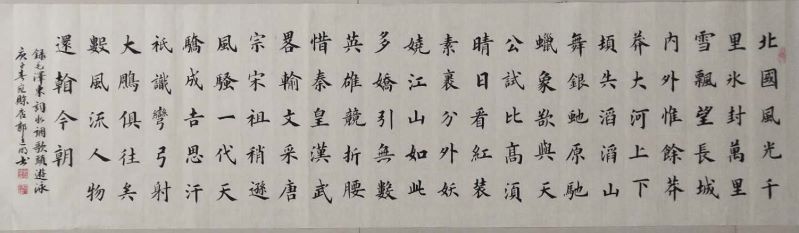 北國風光千
里氷封萬里
雪飄望長城
内外惟餘莽
莽大河上下
頓失滔滔山
舞銀虵原馳
蠟象欲與天
公試比高須
晴日看紅裝
素裹分外妖
嬈江山如此
多嬌引無數
英雄競折腰
惜秦皇漢武
畧輸文采唐
宗宋祖稍遜
風騷一代天
驕成吉思汗
衹識彎弓射
大鵰俱往矣
數風流人物
還翰今朝
録毛澤東詞水調歌頭遊泳
庚子春